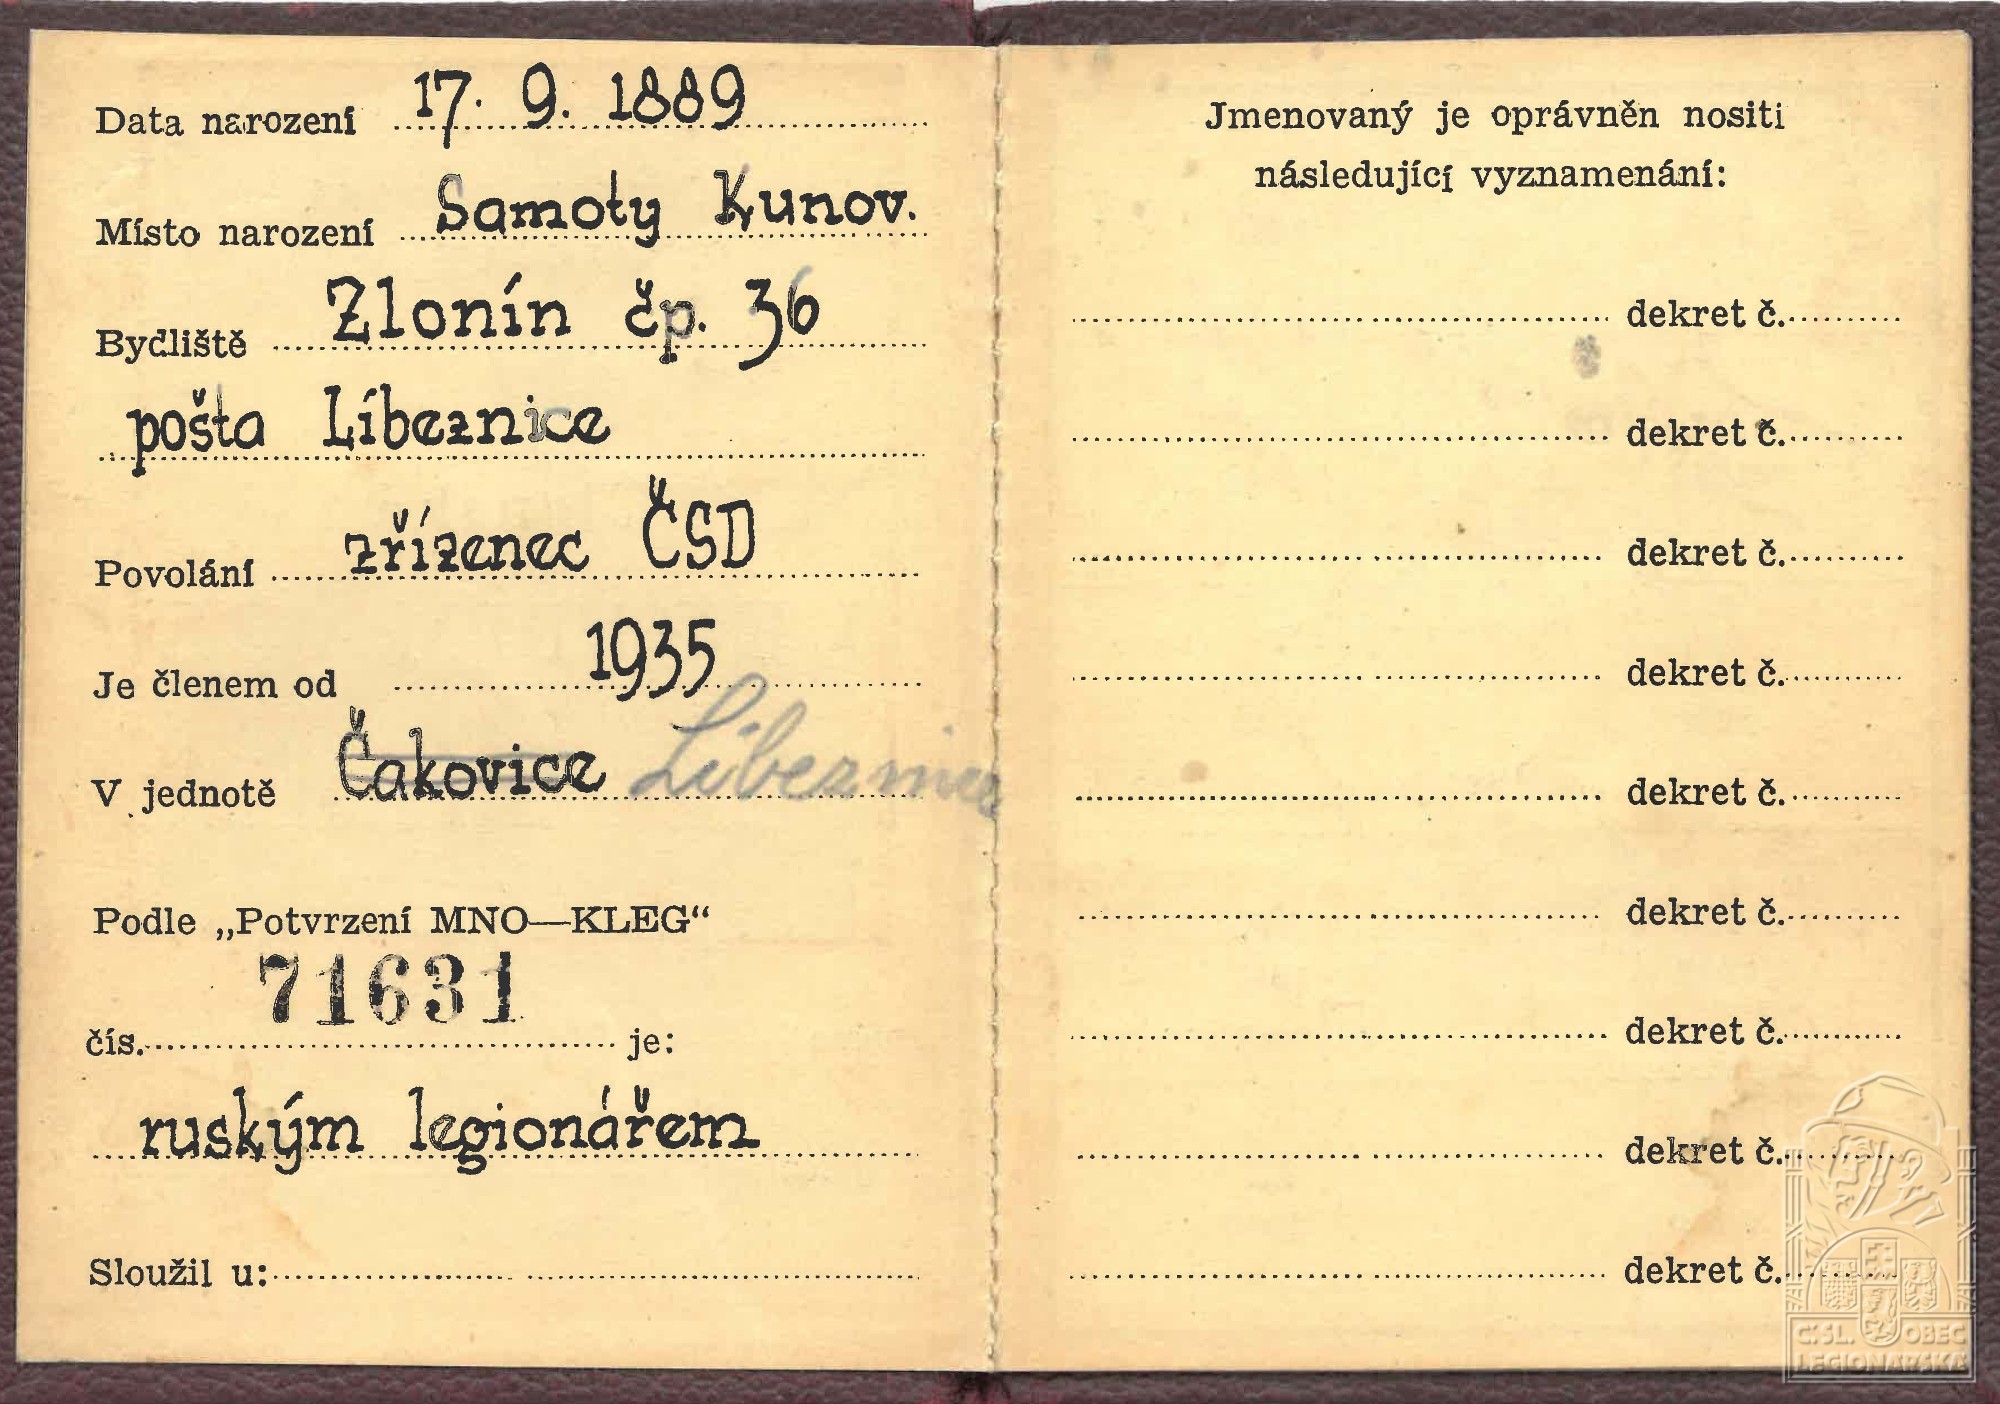 Data narození 17. 9. 1889
Místo narození Samoty Kunov.
Bydliště Zlonín čp. 36
pošta Líbeznice
Povolání zřízenec ČSD
Je členem od 1935
V jednotě Čakovice Líbeznice
Podle „Potvrzení MNO—KLEG“
71631
čís. je:
ruským legionářem
Sloužil u:
Jmenovaný je oprávněn nositi
následující vyznamenání:
dekret č.
dekret č.
dekret č.
dekret č.
dekret č.
dekret č.
dekret č.
dekret č.
dekret č.
Č.SL. OBEC
LEGIONÁŘSKÁ